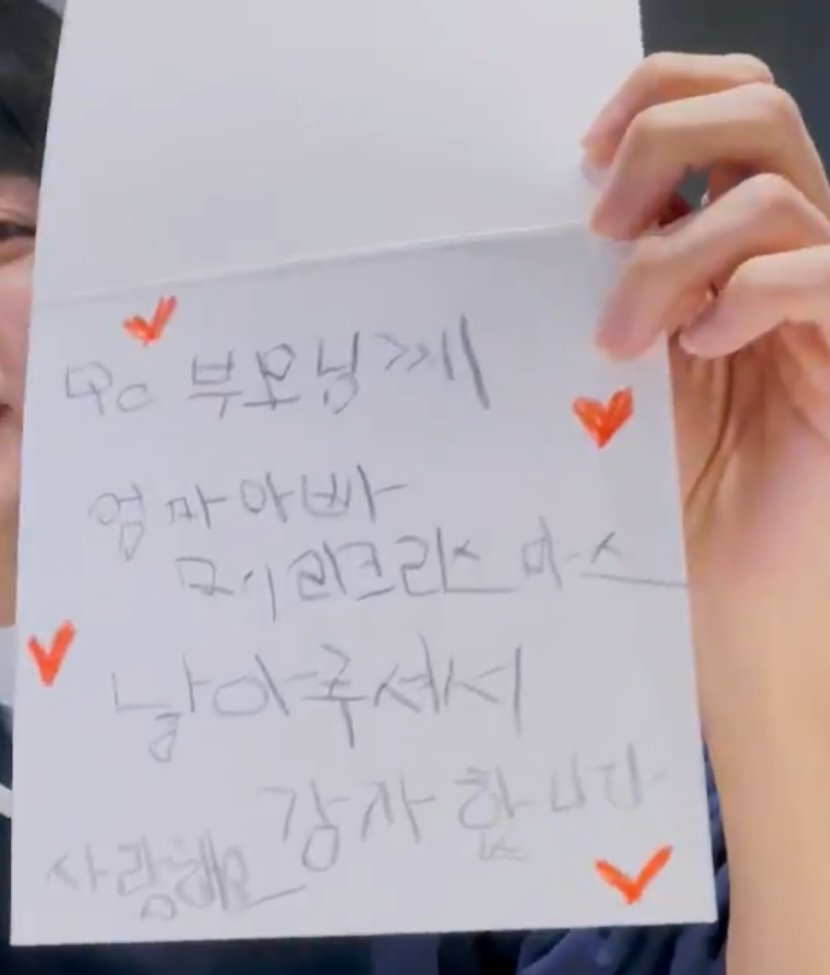 부모님께
엄마아빠
메리크리스마스
낳아주셔서
감사합니다
사랑해요